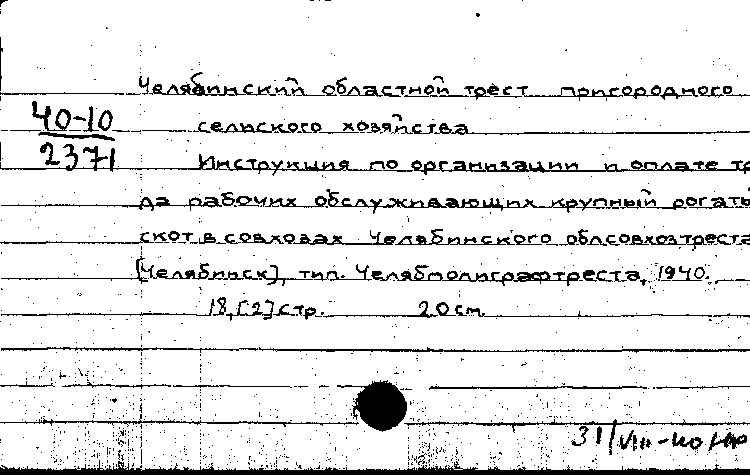 Челябинский областной трест пригородного
40-10
2371
сельского хозяйства
Инструкция по организации и оплате тр
да рабочих обслуживающих крупный рогаты
скот в совхозах Челябинского облсовхозтреста
[Челябинск], тип. Челябполиграфтреста, 1940.
18,[2] стр. 20 см.
31/VIII-40